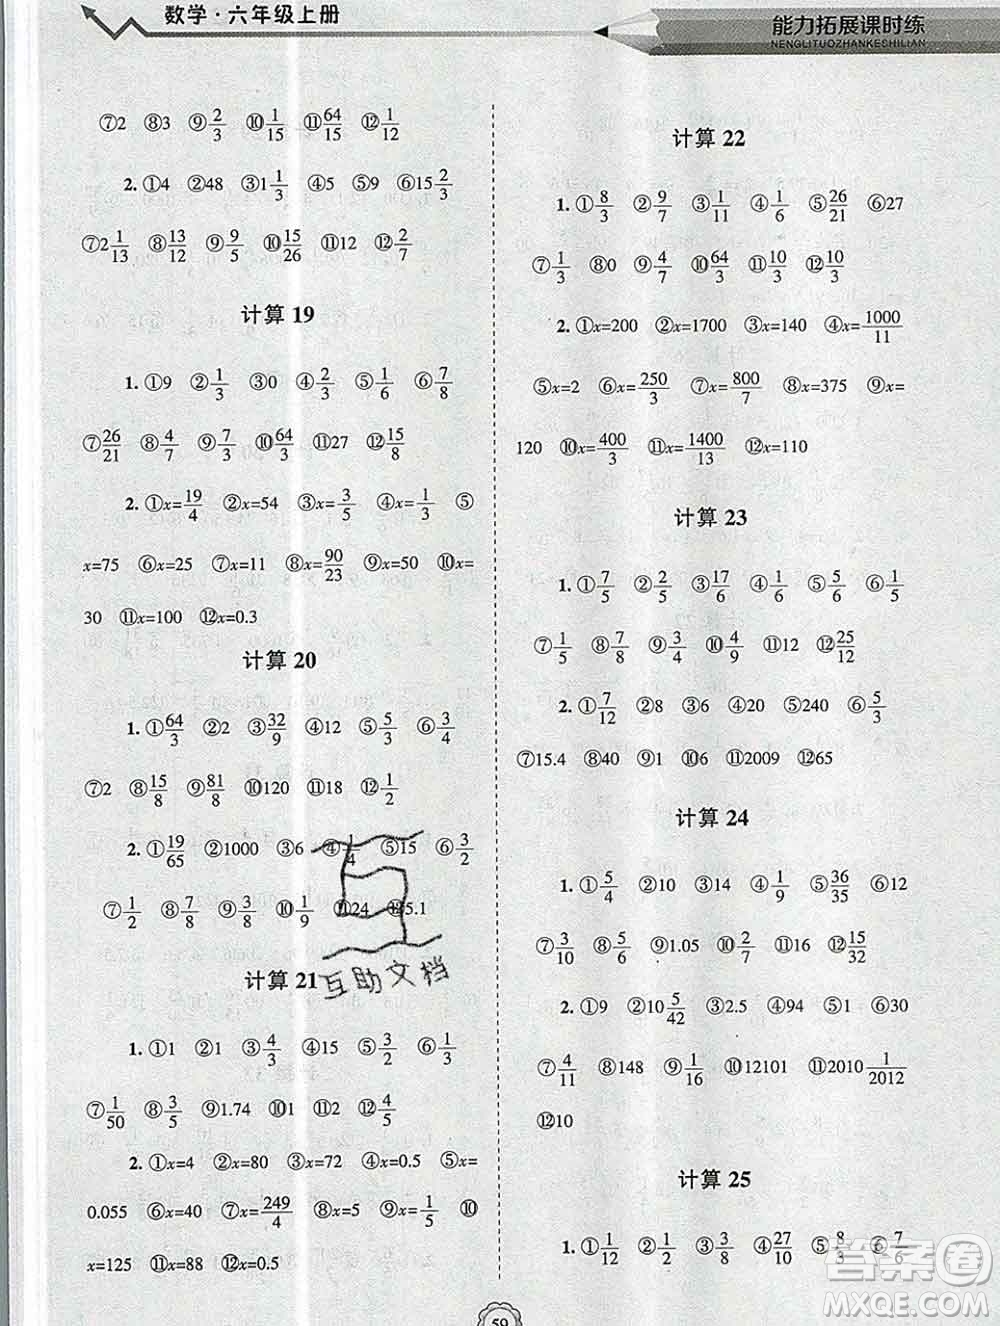 数学·六年级上册
能力拓展课时练
NENGLITUOZHANKESHILIAN
⑦2 ⑧3 ⑨2/3 ⑩1/15 ⑪64/15 ⑫1/12
2. ①4 ②48 ③1 1/3 ④5 ⑤9 ⑥15 2/3
⑦2 1/13 ⑧13/12 ⑨9/5 ⑩15/26 ⑪12 ⑫2/7
计算 19
1. ①9 ②1/3 ③0 ④2/3 ⑤1/6 ⑥7/8
⑦26/21 ⑧4/7 ⑨7/3 ⑩64/3 ⑪27 ⑫15/8
2. ①x=19/4 ②x=54 ③x=3/5 ④x=1/3 ⑤
x=75 ⑥x=25 ⑦x=11 ⑧x=90/23 ⑨x=50 ⑩x=
30 ⑪x=100 ⑫x=0.3
计算 20
1. ①64/3 ②2 ③32/9 ④12 ⑤5/3 ⑥3/4
⑦2 ⑧15/8 ⑨81/8 ⑩120 ⑪18 ⑫1/2
2. ①19/65 ②1000 ③6 ④1/4 ⑤15 ⑥3/2
⑦1/2 ⑧7/8 ⑨3/8 ⑩1/9 ⑪24 ⑫5.1
互助文档
计算 21
1. ①1 ②1 ③4/3 ④15 ⑤3/2 ⑥1/3
⑦1/50 ⑧3/5 ⑨1.74 ⑩1 ⑪2 ⑫4/5
2. ①x=4 ②x=80 ③x=72 ④x=0.5 ⑤x=
0.055 ⑥x=40 ⑦x=249/4 ⑧x=5 ⑨x=1/5 ⑩
x=125 ⑪x=88 ⑫x=0.5
计算 22
1. ①8/3 ②9/7 ③1/11 ④1/6 ⑤26/21 ⑥27
⑦1/3 ⑧0 ⑨4/7 ⑩64/3 ⑪10/3 ⑫10/3
2. ①x=200 ②x=1700 ③x=140 ④x=1000/11
⑤x=2 ⑥x=250/3 ⑦x=800/7 ⑧x=375 ⑨x=
120 ⑩x=400/3 ⑪x=1400/13 ⑫x=110
计算 23
1. ①7/5 ②2/5 ③17/6 ④1/6 ⑤5/6 ⑥1/6
⑦1/5 ⑧7/8 ⑨3/4 ⑩4/9 ⑪12 ⑫25/12
2. ①7/12 ②8 ③6 ④20 ⑤240 ⑥5/3
⑦15.4 ⑧40 ⑨1 ⑩6 ⑪2009 ⑫65
计算 24
1. ①5/4 ②10 ③14 ④1/9 ⑤36/35 ⑥12
⑦3/10 ⑧5/6 ⑨1.05 ⑩2/7 ⑪16 ⑫15/32
2. ①9 ②10 5/42 ③2.5 ④94 ⑤1 ⑥30
⑦4/11 ⑧148 ⑨1/16 ⑩12101 ⑪2010 1/2012
⑫10
计算 25
1. ①1/12 ②1/2 ③3/8 ④27/10 ⑤8/3 ⑥7/6
59
答案圈
MXQE.COM